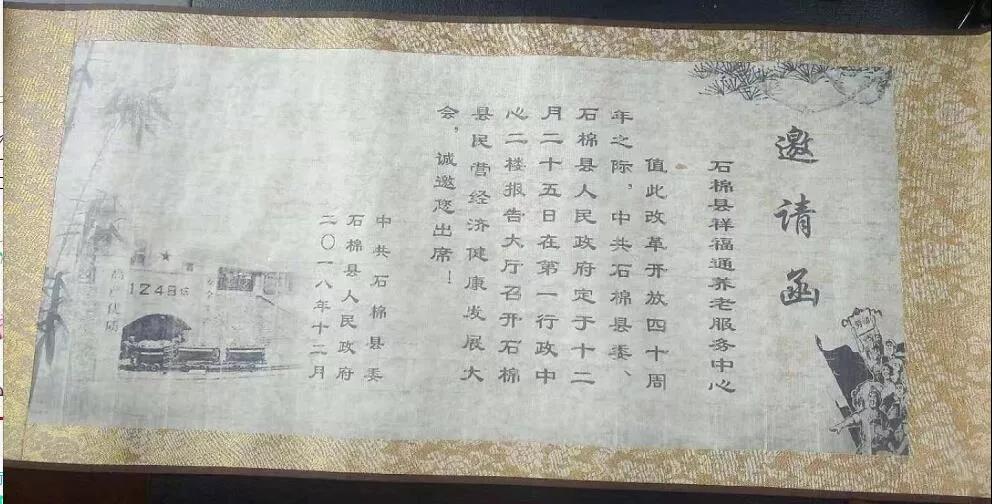 邀请函
石棉县祥福通养老服务中心
值此改革开放四十周
年之际，中共石棉县委、
石棉县人民政府定于十二
月二十五日在第一行政中
心二楼报告大厅召开石棉
县民营经济健康发展大
会，诚邀您出席！
中共石棉县委
石棉县人民政府
二〇一八年十二月
1248
高产优质
安全